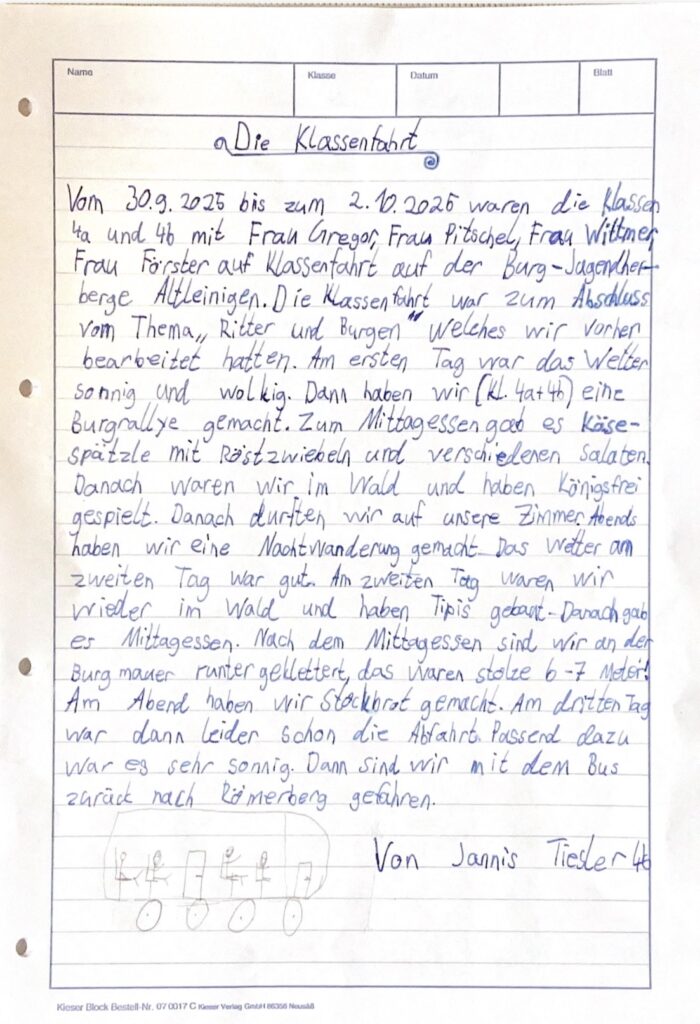 Name Klasse Datum Blatt
Die Klassenfahrt
Vom 30.9.2025 bis zum 2.10.2025 waren die Klassen
4a und 4b mit Frau Gregor, Frau Pitschel, Frau Wittmer,
Frau Förster auf Klassenfahrt auf der Burg-Jugendher-
berge Altleinigen. Die Klassenfahrt war zum Abschluss
vom Thema „Ritter und Burgen" welches wir vorher
bearbeitet hatten. Am ersten Tag war das Wetter
sonnig und wolkig. Dann haben wir (Kl. 4a+4b) eine
Burgrallye gemacht. Zum Mittagessen gab es Käse-
spätzle mit Röstzwiebeln und verschiedenen Salaten.
Danach waren wir im Wald und haben Königsfrei
gespielt. Danach durften wir auf unsere Zimmer. Abends
haben wir eine Nachtwanderung gemacht. Das Wetter am
zweiten Tag war gut. Am zweiten Tag waren wir
wieder im Wald und haben Tipis gebaut. Danach gab
es Mittagessen. Nach dem Mittagessen sind wir an der
Burgmauer runter geklettert, das waren stolze 6-7 Meter!
Am Abend haben wir Stockbrot gemacht. Am dritten Tag
war dann leider schon die Abfahrt. Passend dazu
war es sehr sonnig. Dann sind wir mit dem Bus
zurück nach Römerberg gefahren.
Von Jannis Tiesler 4b
Kieser Block Bestell-Nr. 07 0017 C Kieser Verlag GmbH 86356 Neusäß